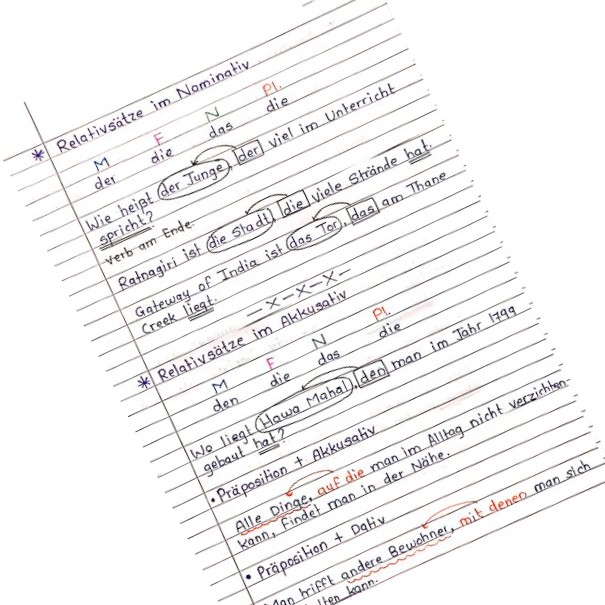 * Relativsätze im Nominativ
M F N Pl.
der die das die
Wie heißt der Junge, der viel im Unterricht
spricht?
Verb am Ende.
Ratnagiri ist die Stadt, die viele Strände hat.
Gateway of India ist das Tor, das am Thane
Creek liegt.
-x-x-x-x-
* Relativsätze im Akkusativ
M F N Pl.
den die das die
Wo liegt Hawa Mahal, den man im Jahr 1799
gebaut hat?
• Präposition + Akkusativ
Alle Dinge, auf die man im Alltag nicht verzichten
kann, findet man in der Nähe.
• Präposition + Dativ
Man trifft andere Bewohner, mit denen man sich
kann.